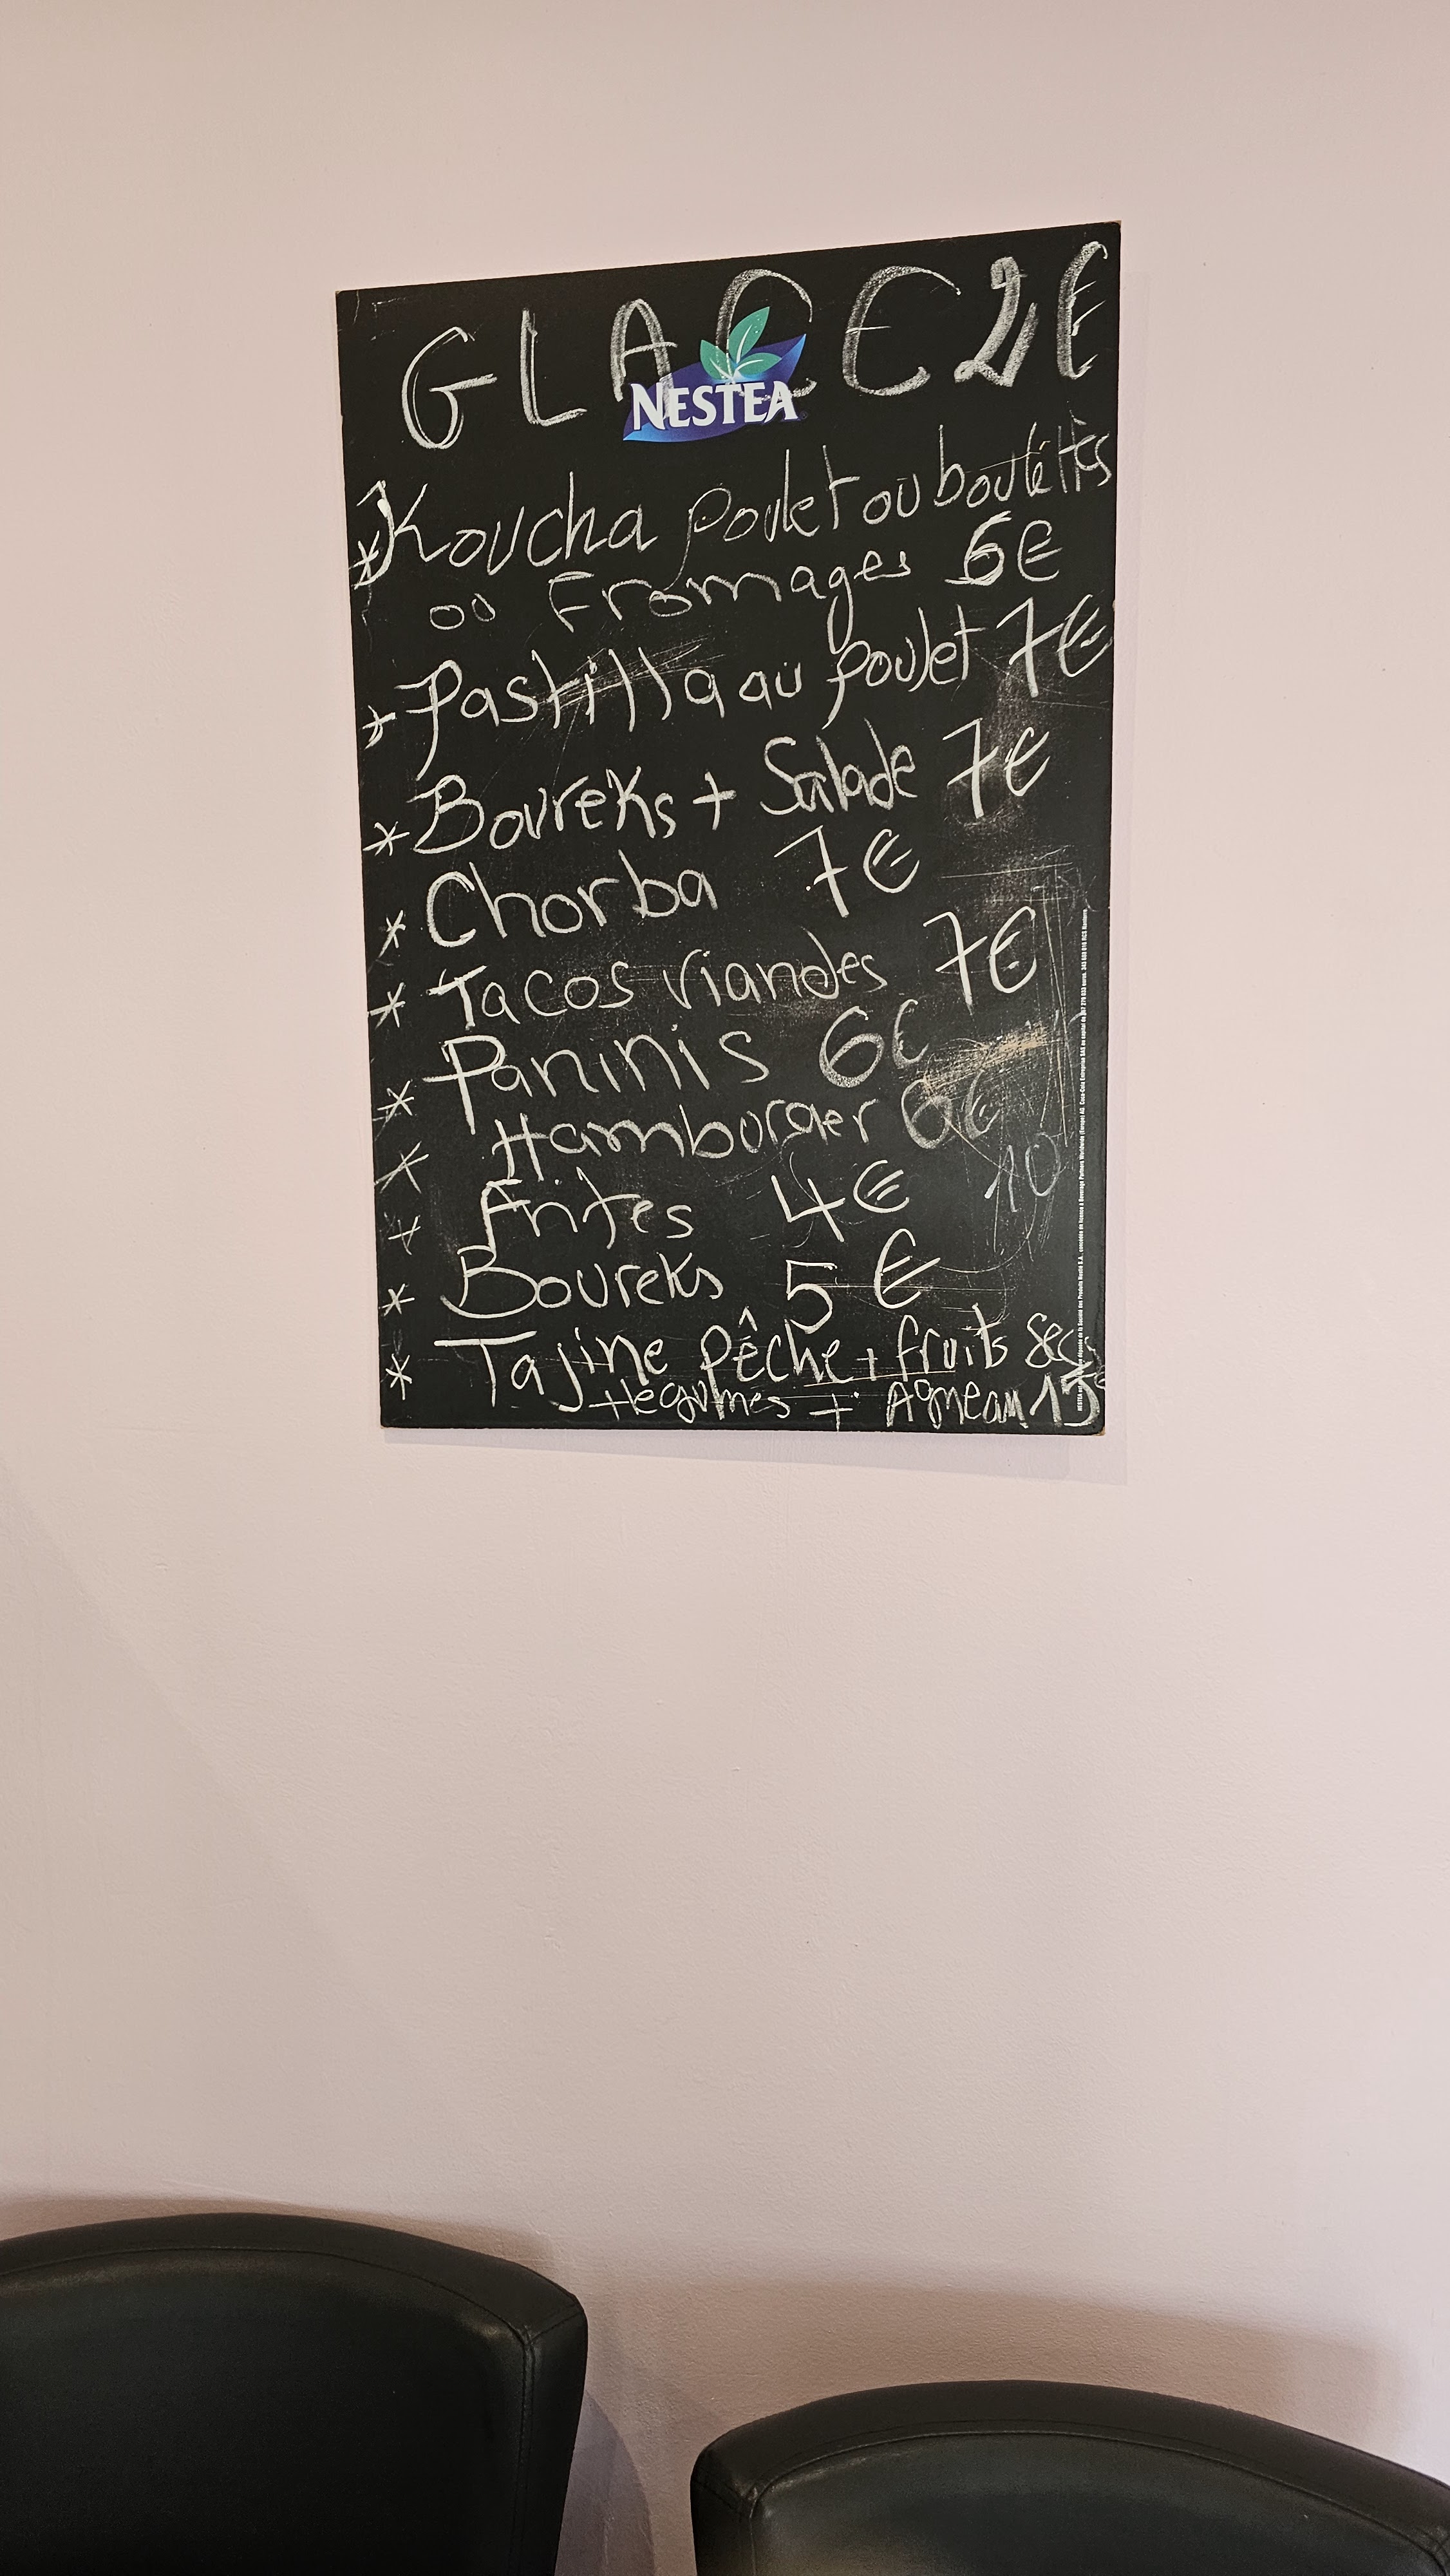 GLACE 2€
NESTEA
* Koucha poulet ou boulétts
ou Fromages 6€
* Pastilla au poulet 7€
* Boureks + Salade 7€
* Chorba 7€
* Tacos viandes 7€
* Paninis 6€
* Hamburger 6€
10
* Frites 4€
* Boureks 5€
* Tajine Pêche + fruits Secs
+ legumes + Agneau 15